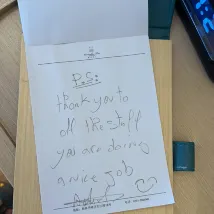 P.S:
thank you to
all the staff
you are doing
a nice job